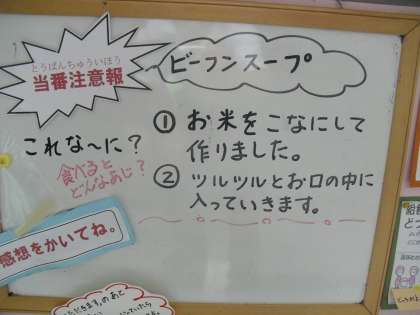 とうばんちゅういほう
当番注意報
ビーフンスープ
これな〜に?
食べると
どんなあじ?
① お米をこなにして
作りました。
② ツルツルとお口の中に
入っていきます。
感想をかいてね。